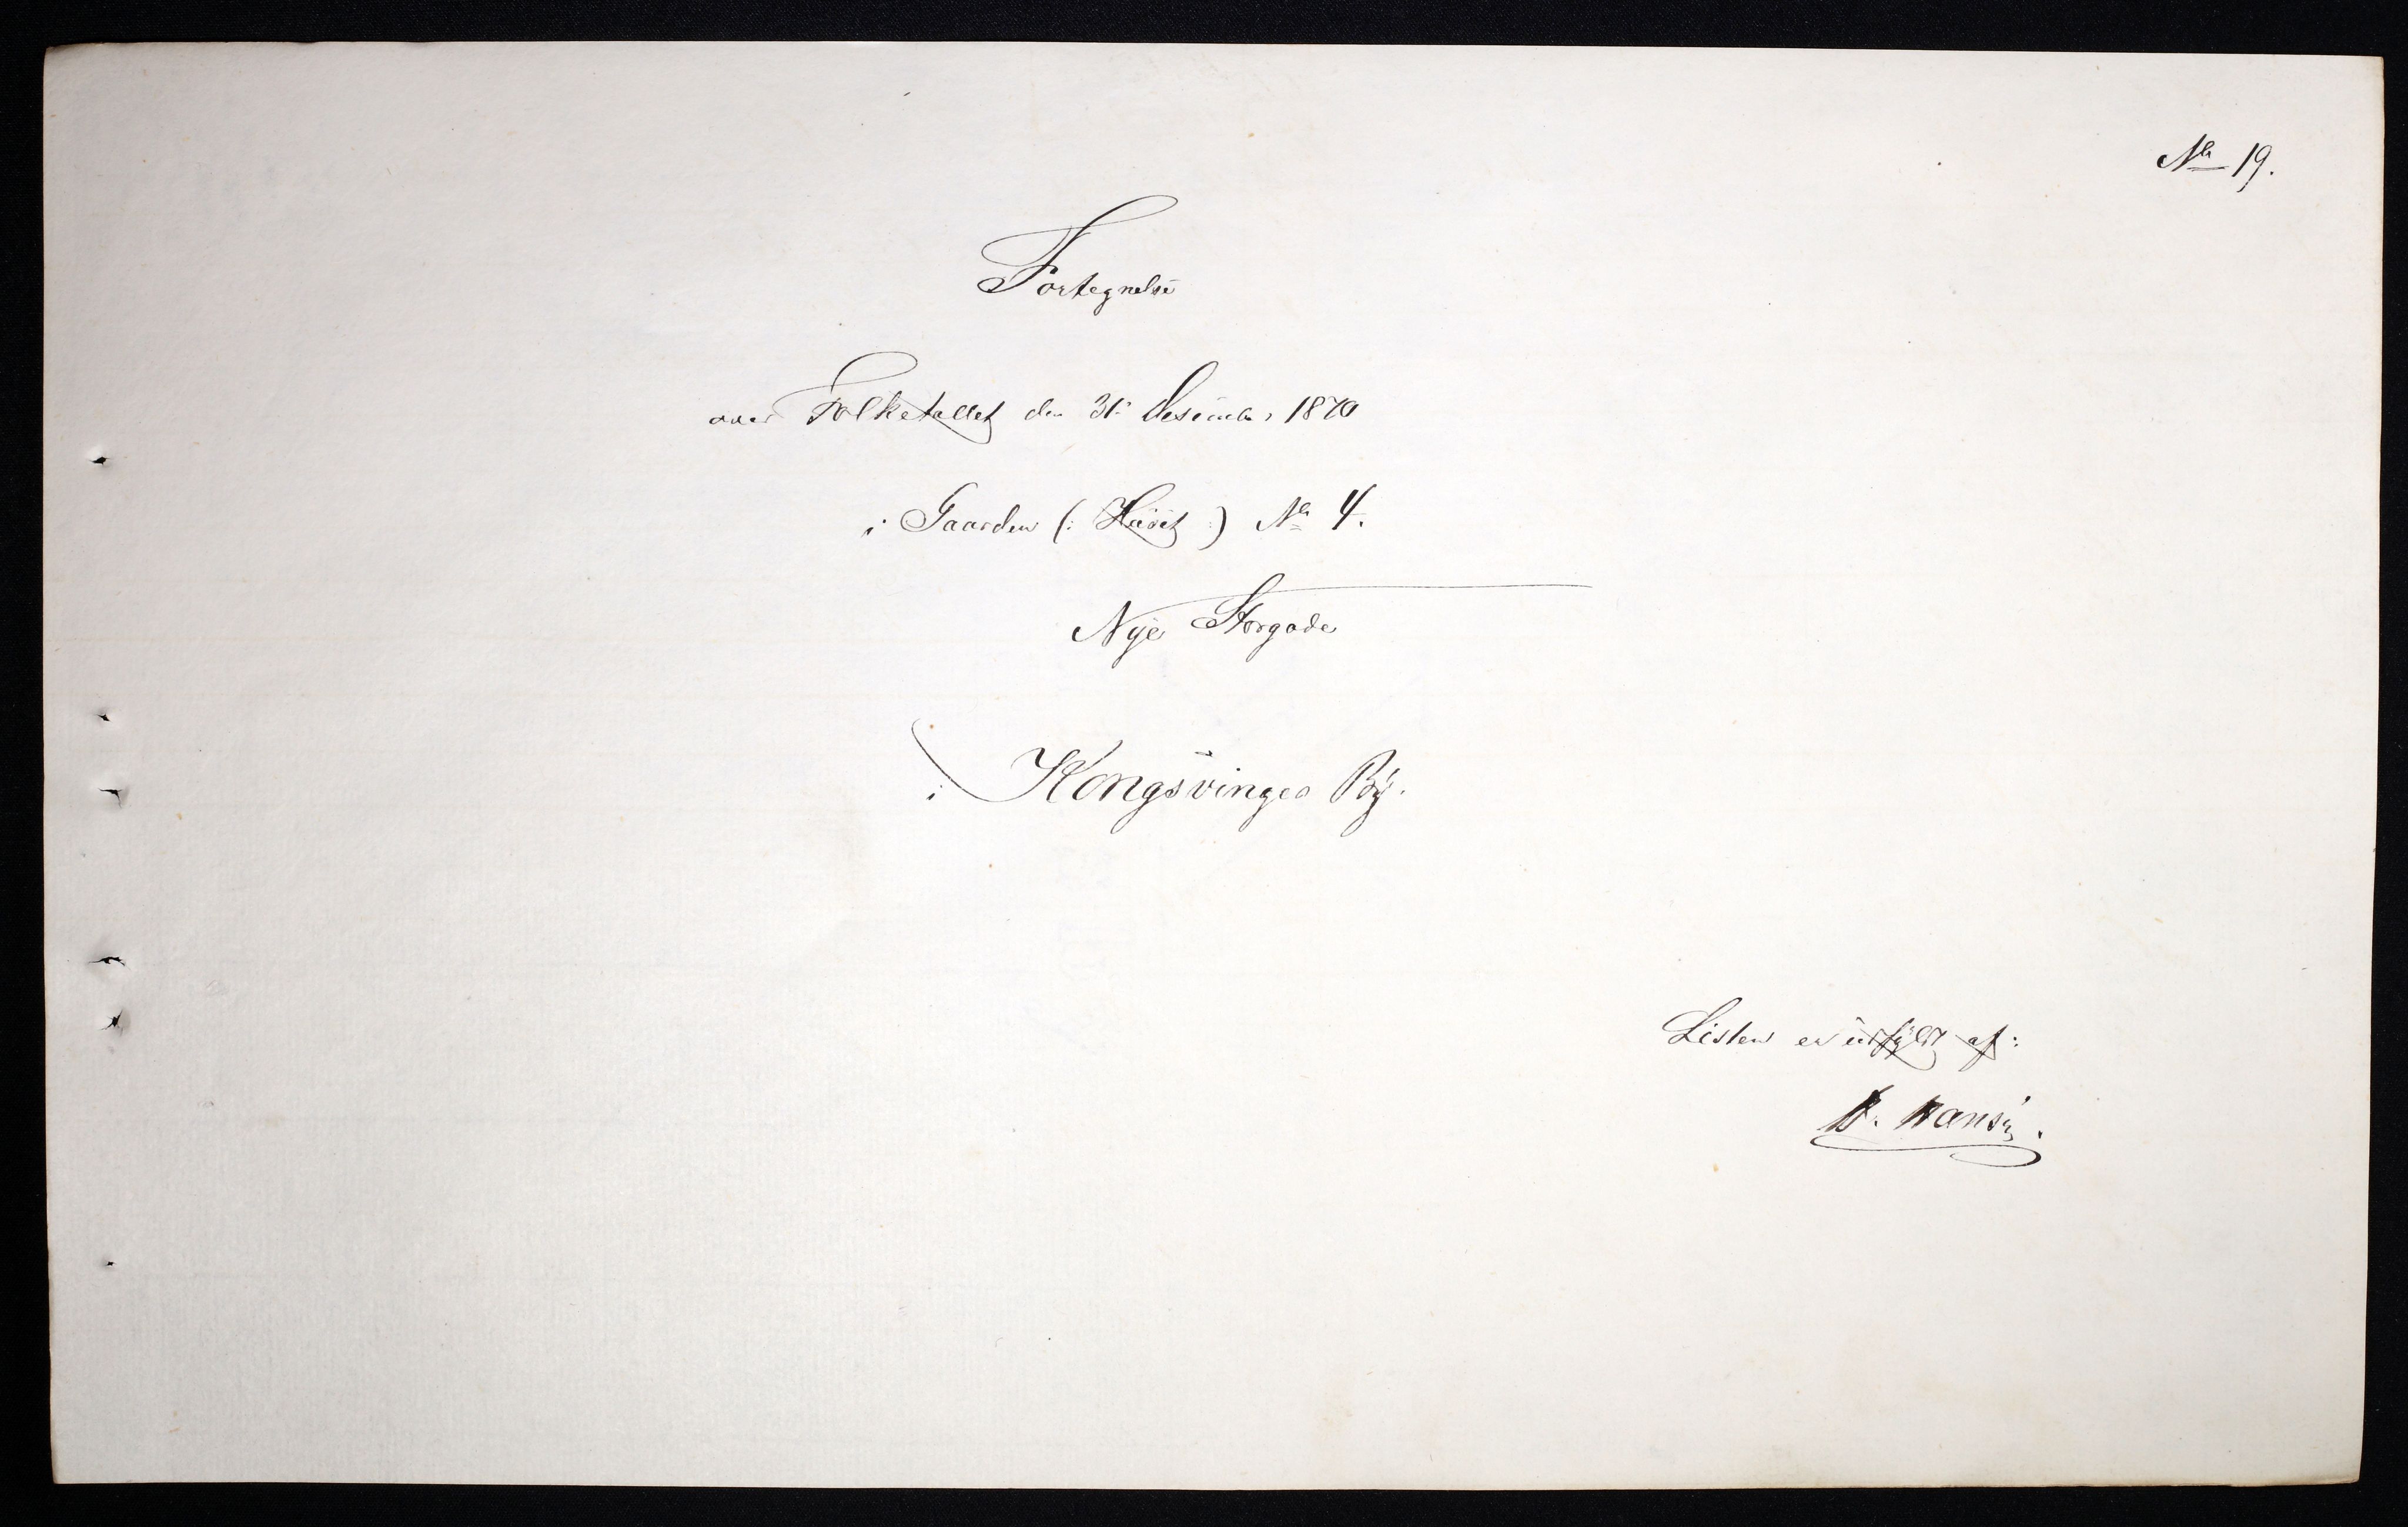 No 19.
Fortegnelse
over Folketallet den 31te Desember 1870
i Gaarden (: Huset :) No 4.
Nye Storgade
i Kongsvinger By.
Listen er udfyldt af:
Hansen.